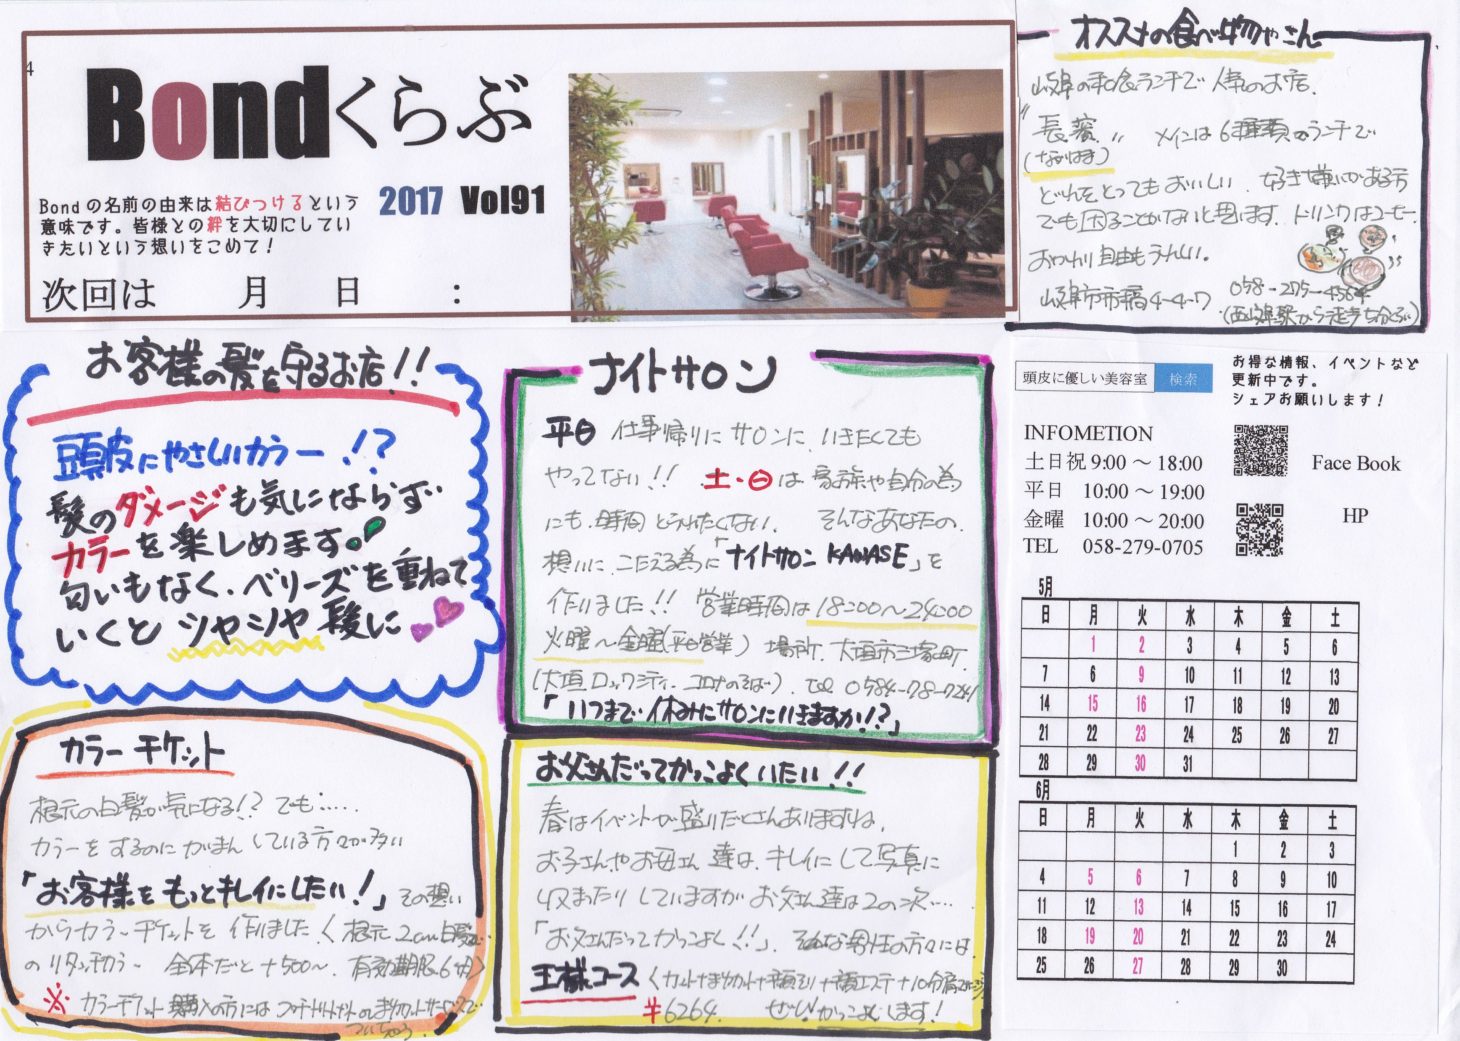 4
Bondくらぶ
2017 Vol91
Bondの名前の由来は結びつけるという
意味です。皆様との絆を大切にしてい
きたいという想いをこめて!
次回は 月 日 :
オススメの食べ物やさん
岐阜の和食ランチで人気のお店.
"長濱" メインは6種類のランチで
(ながはま)
どれをとってもおいしい. 好き嫌いがある方
でも困ることがないと思います. ドリンクはコーヒー.
おかわり自由もうれしい.
岐阜市市橋4-4-7 058-275-4564
(西岐阜駅から徒歩5分くらい)
お客様の髪を守るお店!!
頭皮にやさしいカラー!?
髪のダメージも気にならず
カラーを楽しめます。
匂いもなく、ベリーズを重ねて
いくとツヤツヤ髪に
ナイトサロン
平日 仕事帰りにサロンに いきたくても
やってない!! 土・日は家族や自分の為
にも 時間とられたくない. そんなあなたの.
想いに こたえる為に「ナイトサロン KAWASE」を
作りました!! 営業時間は18:00〜24:00
火曜〜金曜(平日営業) 場所. 大垣市三塚町.
(大垣ロックシティ. コロナのそば). tel 0584-78-7241
「いつまで休みにサロンにいきますか!?」
カラーチケット
根元の白髪が気になる!? でも.....
カラーをするのにがまんしている方々が多い
「お客様をもっとキレイにしたい!」その想い
からカラーチケットを作りました〈根元2cm白髪
のリタッチカラー 全体だと+500〜. 有効期限6ヶ月〉
※カラーチケット購入の方には
お父さんだってかっこよくいたい!!
春はイベントが盛りだくさんありますね.
お子さんやお母さん達は、キレイにして写真に
収まったりしていますがお父さん達は2の次....
「お父さんだってかっこよく!!」. そんな男性の方々には
王様コース〈カット+まゆカット+顔そり+顔エステ+10分肩マッサージ〉
¥6264. ぜひかっこよくします!
頭皮に優しい美容室 検索
お得な情報、イベントなど
更新中です。
シェアお願いします!
INFOMETION
土日祝 9:00 〜 18:00
平日 10:00 〜 19:00
金曜 10:00 〜 20:00
TEL 058-279-0705
Face Book
HP
5月
日 月 火 水 木 金 土
1 2 3 4 5 6
7 6 9 10 11 12 13
14 15 16 17 18 19 20
21 22 23 24 25 26 27
28 29 30 31
6月
日 月 火 水 木 金 土
1 2 3
4 5 6 7 8 9 10
11 12 13 14 15 16 17
18 19 20 21 22 23 24
25 26 27 28 29 30